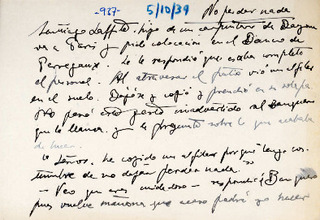 -937- 5/10/39 No perder nada
Santiago Laffitte, hijo de un carpintero de Bayona
va a París y pide colocación en el Banco de
Perregaux. Se le respondió que estaba completo
el personal. Al atravesar el patio vió un alfiler
en el suelo. Bajóse y cogió y prendió en su solapa
No pasó este gesto inadvertido al banquero
que le llama y le preguntó sobre lo que acababa
de hacer.
" Señor, he cogido un alfiler porque tengo cos-
tumbre de no dejar perder nada "
- Veo que eres cuidadoso - respondió el Banquero
pues vuelve mañana que acaso podré yo hacer